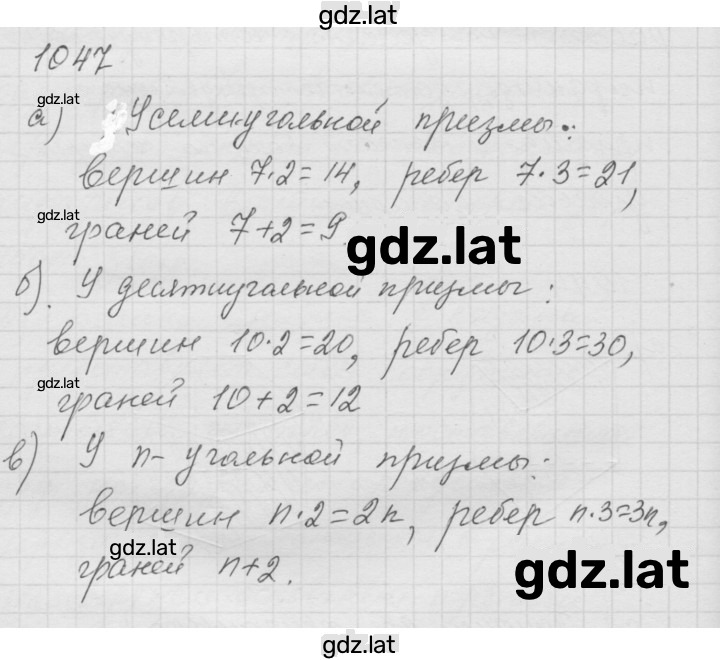 gdz.lat
1047
gdz.lat
а) У семиугольной призмы:
вершин 7·2=14, ребер 7·3=21,
gdz.lat
граней 7+2=9.
gdz.lat
б). У десятиугольной призмы:
вершин 10·2=20, ребер 10·3=30,
gdz.lat
граней 10+2=12
в) У n-угольной призмы:
вершин n·2=2n, ребер n·3=3n,
gdz.lat
граней n+2.
gdz.lat
gdz.lat